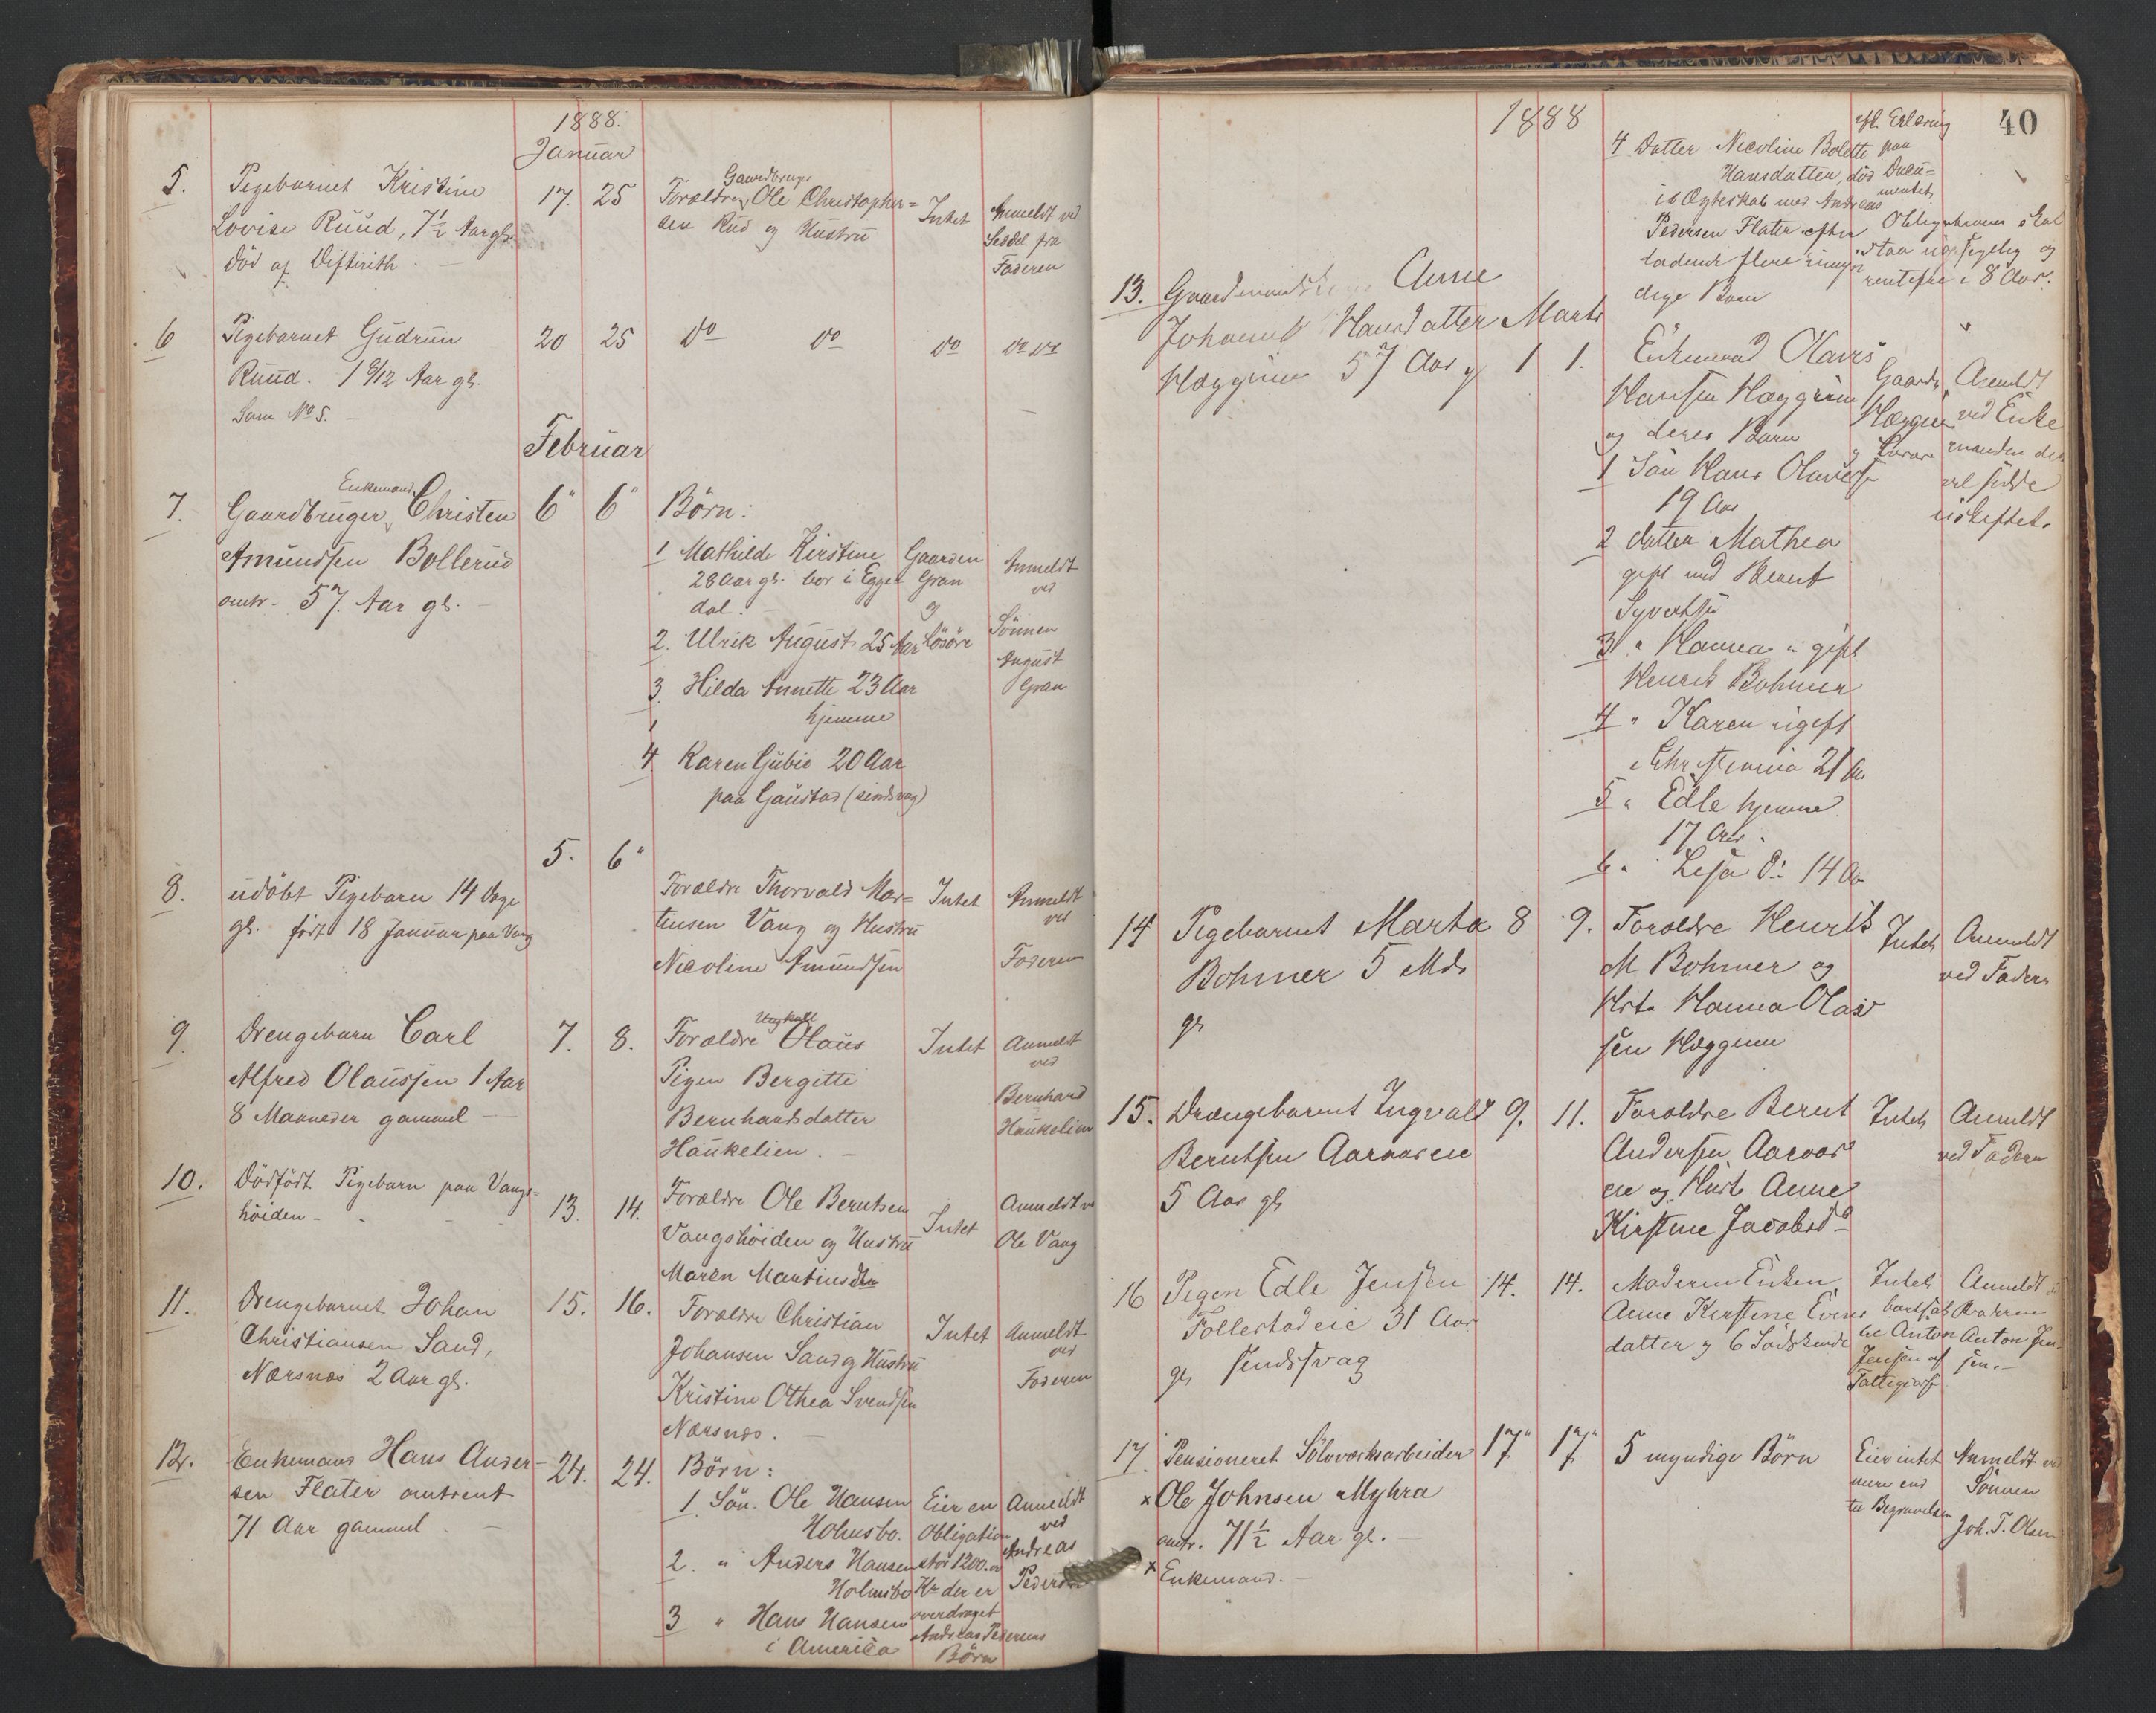 1888.
Januar
5.
Pigebarnet Kristine
Lovise Ruud, 7½ Aar gl.
död af Difterith.
17. 25
Gaardbruger
Forældre, Ole Christopher=
sen Rud og Hustru
Intet
Anmeldt ved
Seddel fra
Faderen
6
Pigebarnet Gudrun
Ruud. 1 6/12 Aar gl.
Som No 5.
20 25
do do
do
do do
Februar
7.
Enkemand
Gaardbruger, Christen
Amundsen Bollerud
omtr. 57 Aar gl.
6" 6"
Börn:
1 Mathilde Kirstine
28 Aar gl. bor i Egge
dal.
2. Ulrik August 25 Aar
3. Hilda Annette 23 Aar
hjemme
4 Karen Gubie 20 Aar
paa Gaustad (sindsvag)
Gaarden
Gran
og
Lösöre
Anmeldt
ved
Sönnen
August
Gran
8.
udöbt Pigebarn 14 Dage
gl. födt 18 Januar paa Vang
5. 6"
Forældre Thorvald Mar=
tinsen Vang og Hustru
Nicoline Amundsen
Intet
Anmeldt
ved
Faderen
9.
Drengebarn Carl
Alfred Olaussen 1 Aar
8 Maaneder gammel
7. 8.
Ungkarl
Forældre Olaus
Pigen Bergitte
Bernhardsdatter
Haukelien.
Intet
Anmeldt
ved
Bernhard
Haukelien
10.
Dödfödt Pigebarn paa Vangs=
höiden
13. 14.
Forældre Ole Berntsen
Vangshöiden og Hustru
Maren Martinsdtr
Intet
Anmeldt v
Ole Vang
11.
Drengebarnet Johan
Christiansen Sand,
Nærsnæs 2 Aar gl.
15. 16.
Forældre Christian
Johansen Sand og Hustru
Kristine Othea Svendsen
Nærsnæs.
Intet
Anmeldt
ved
Faderen
12.
Enkemand Hans Ander-
sen Flater omtrent
71 Aar gammel
24. 24.
Börn:
1. Sön. Ole Hansen
Holmsbo.
2. " Anders Hansen
Holmsbo
3 " Hans Hansen
i America
Eier en
Obligation
stor 1200
Kr der er
overdraget
Andreas Pedersens
Börn
Anmeldt
ved
Andreas
Pedersen
1888
40
4 Datter Nicoline Bolette
Hansdatter, död
i Ægteskab med Andreas
Pedersen Flater efter
ladende flere umyn
dige Barn
efl. Erklæring
paa
Docu=
mentet,
Obligationen skal
staa uopsigelig og
rentefri i 8 Aar.
13.
Gaardmands Anne
Johanne Hansdatter
Hæggum 57 Aar gl
Marts
1 1.
Enkemand Olaves
Hansen Hæggum
og deres Barn
1 Sön Hans Olavesen
19 Aar
2 datter Mathea
gift med Bernt
Syvertsen
3 " Hanna " gift
Henrik Bohmer
4 " Karen ugift
i Christiania 21 Aar
5 " Edle hjemme
17 Aar.
6 " Lesa do 14 Aar
Gaarden
Hæggum
og Lösöre
Anmeldt
ved Enke
manden der
vil sidde
uskiftet.
14
Pigebarnet Marta
Bohmer 5 Mdr
gl
8 9.
Foroldre Henrik
M Bohmer og
Hst. Hanna Olav
sen Hæggum
Intet
Anmeldt
ved Fadern
15.
Drængebarnet Ingvald
Berntsen Aaraaseie
5 Aar gl
9. 11.
Foroldre Bernt
Andersen Aaraas
eie og Hust. Anne
Kirstine Jacobsd
Intet
Anmeldt
ved Fadern
16
Pigen Edle Jensen
Follestadeie 31 Aar
gl sindssvag
14. 14.
Moderen Enken
Anne Kirstine Evens
datter og 6 Sødskende
Intet
bortsat
he Anton
Jensen af
Anmeldt
Brodren
Anton Jen
sen.
17
Pensioneret Sölvværksarbeider
x Ole Johnsen Myhra
omtr. 71½ Aar gl.
x Enkemand.
17" 17"
5 myndige Börn
Eier intet
mere end
til Begravelsen
Anmeldt ved
Sönnen
Joh. T. Olsen